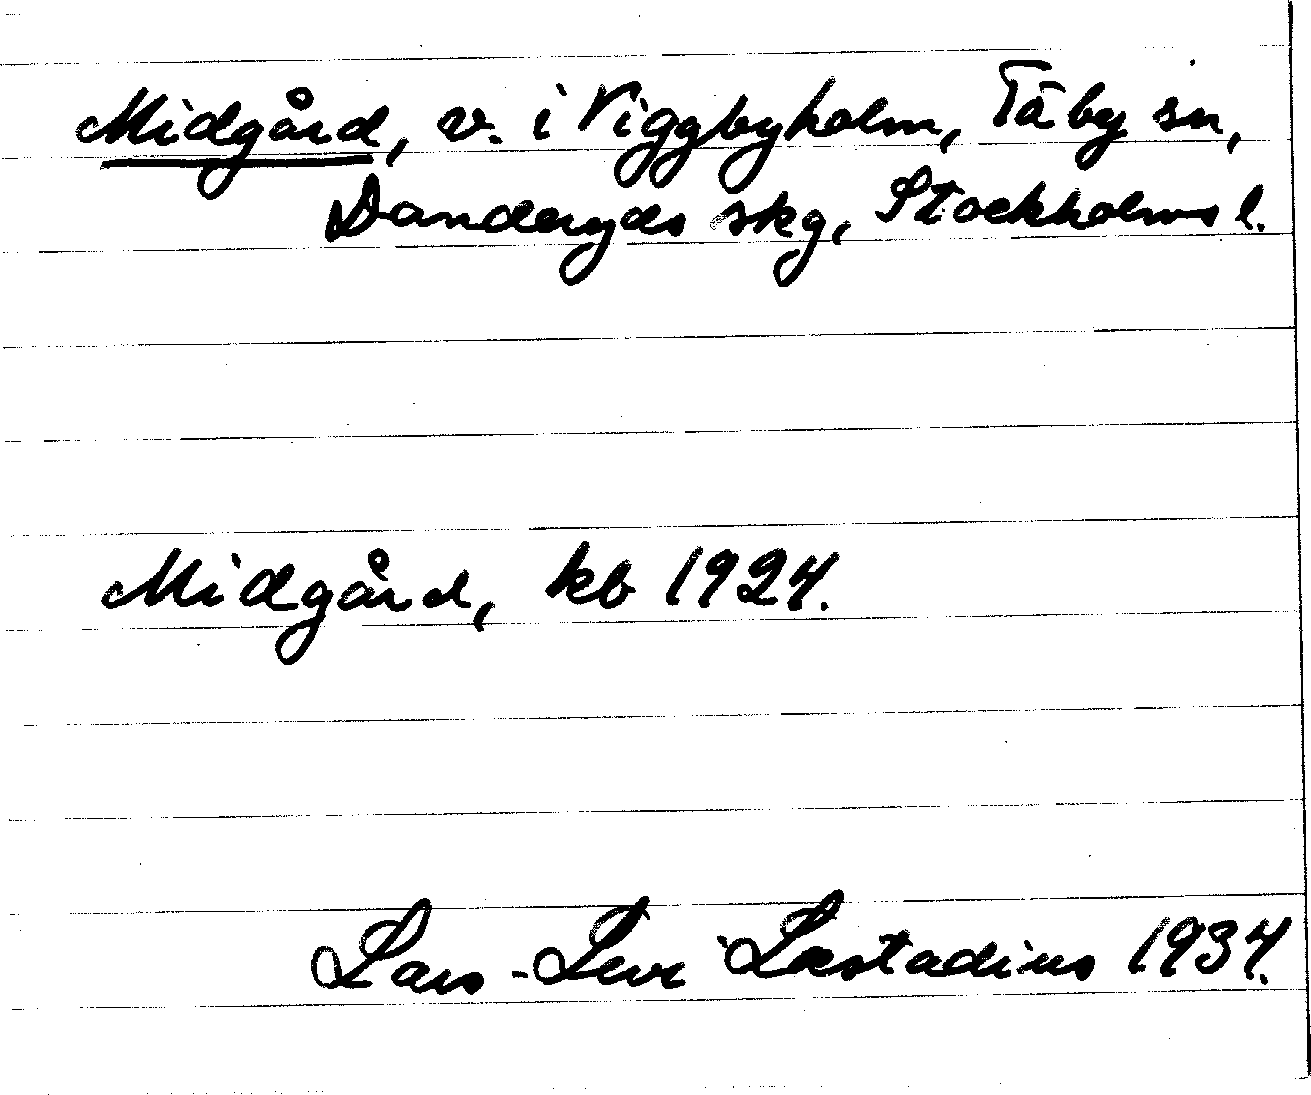 Midgård, v. i Viggbyholm, Täby sn,
Danderyds skg, Stockholms l.
Midgård, kb 1924.
Lars-Levi Læstadius 1934.